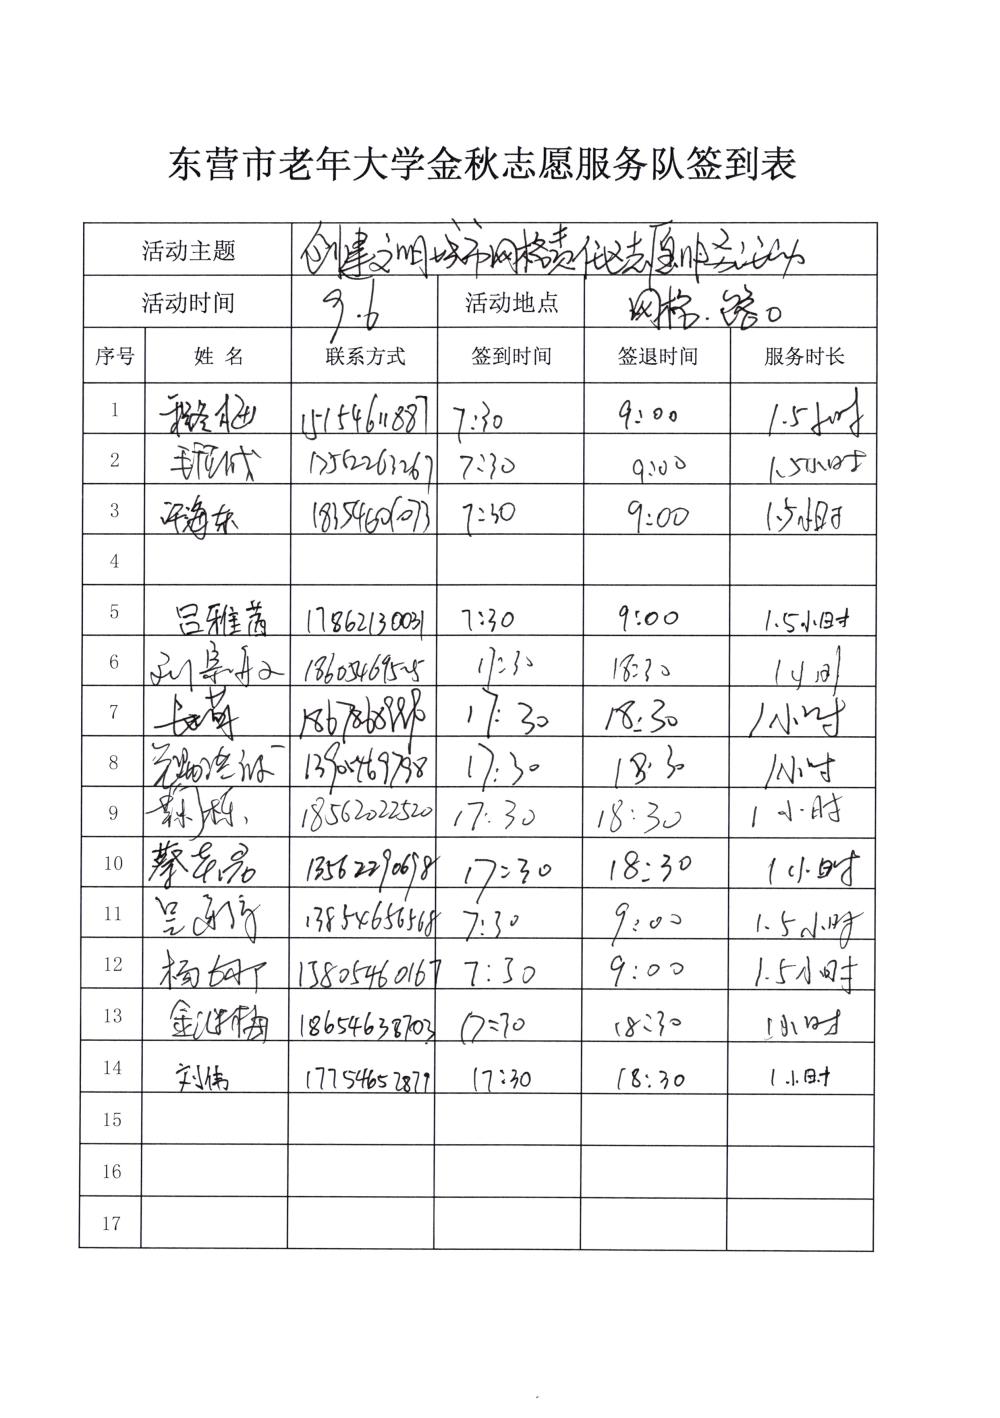 东营市老年大学金秋志愿服务队签到表
活动主题 创建文明城市网格责任区志愿服务活动
活动时间 9.6 活动地点 网格.路口
序号 姓名 联系方式 签到时间 签退时间 服务时长
1 15154611887 7:30 9:00 1.5小时
2 13562263267 7:30 9:00 1.5小时
3 许海东 7:30 9:00 1.5小时
4
5 吕雅茜 17862130031 7:30 9:00 1.5小时
6 17:30 18:30 1小时
7 17:30 18:30 1小时
8 17:30 18:30 1小时
9 18562022520 17:30 18:30 1小时
10 蔡春景 13562290698 17:30 18:30 1小时
11 13854656568 7:30 9:00 1.5小时
12 13805460167 7:30 9:00 1.5小时
13 18654638703 17:30 18:30 1小时
14 刘伟 17754652877 17:30 18:30 1小时
15
16
17